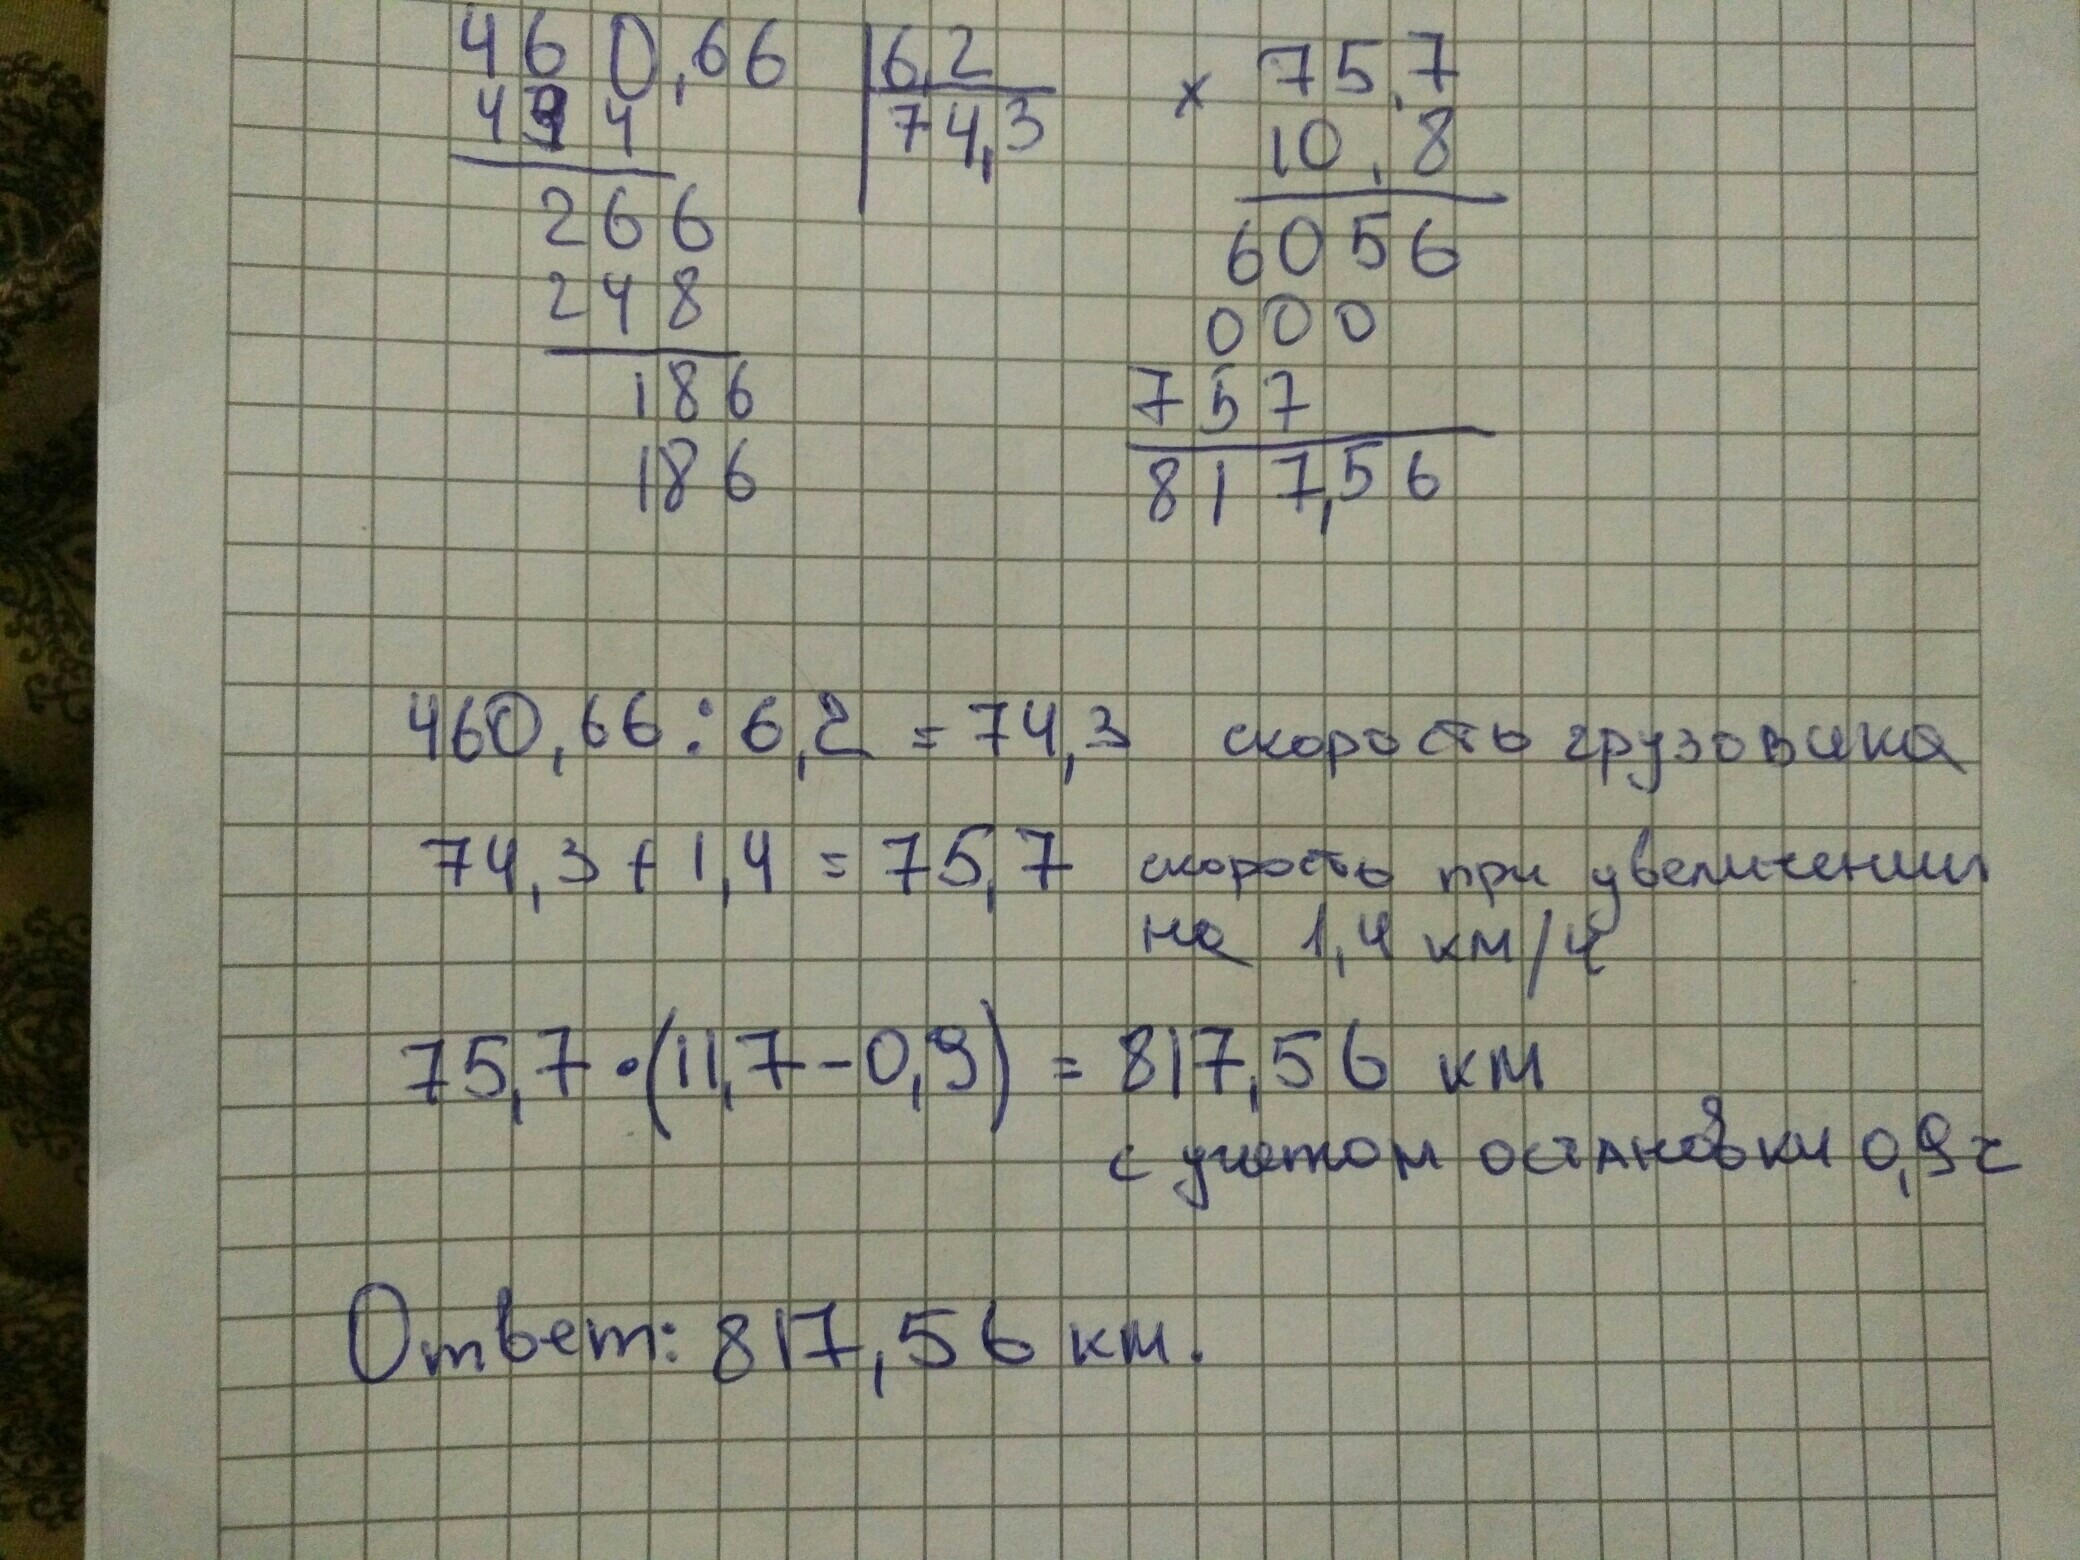 460,66 6,2
434 74,3
266
248
186
186
× 75,7
10,8
6056
000
757
817,56
460,66 : 6,2 = 74,3 скорость грузовика
74,3 + 1,4 = 75,7 скорость при увеличении
на 1,4 км/ч
75,7 · (11,7 - 0,9) = 817,56 км
с учетом остановки 0,9 ч
Ответ: 817,56 км.